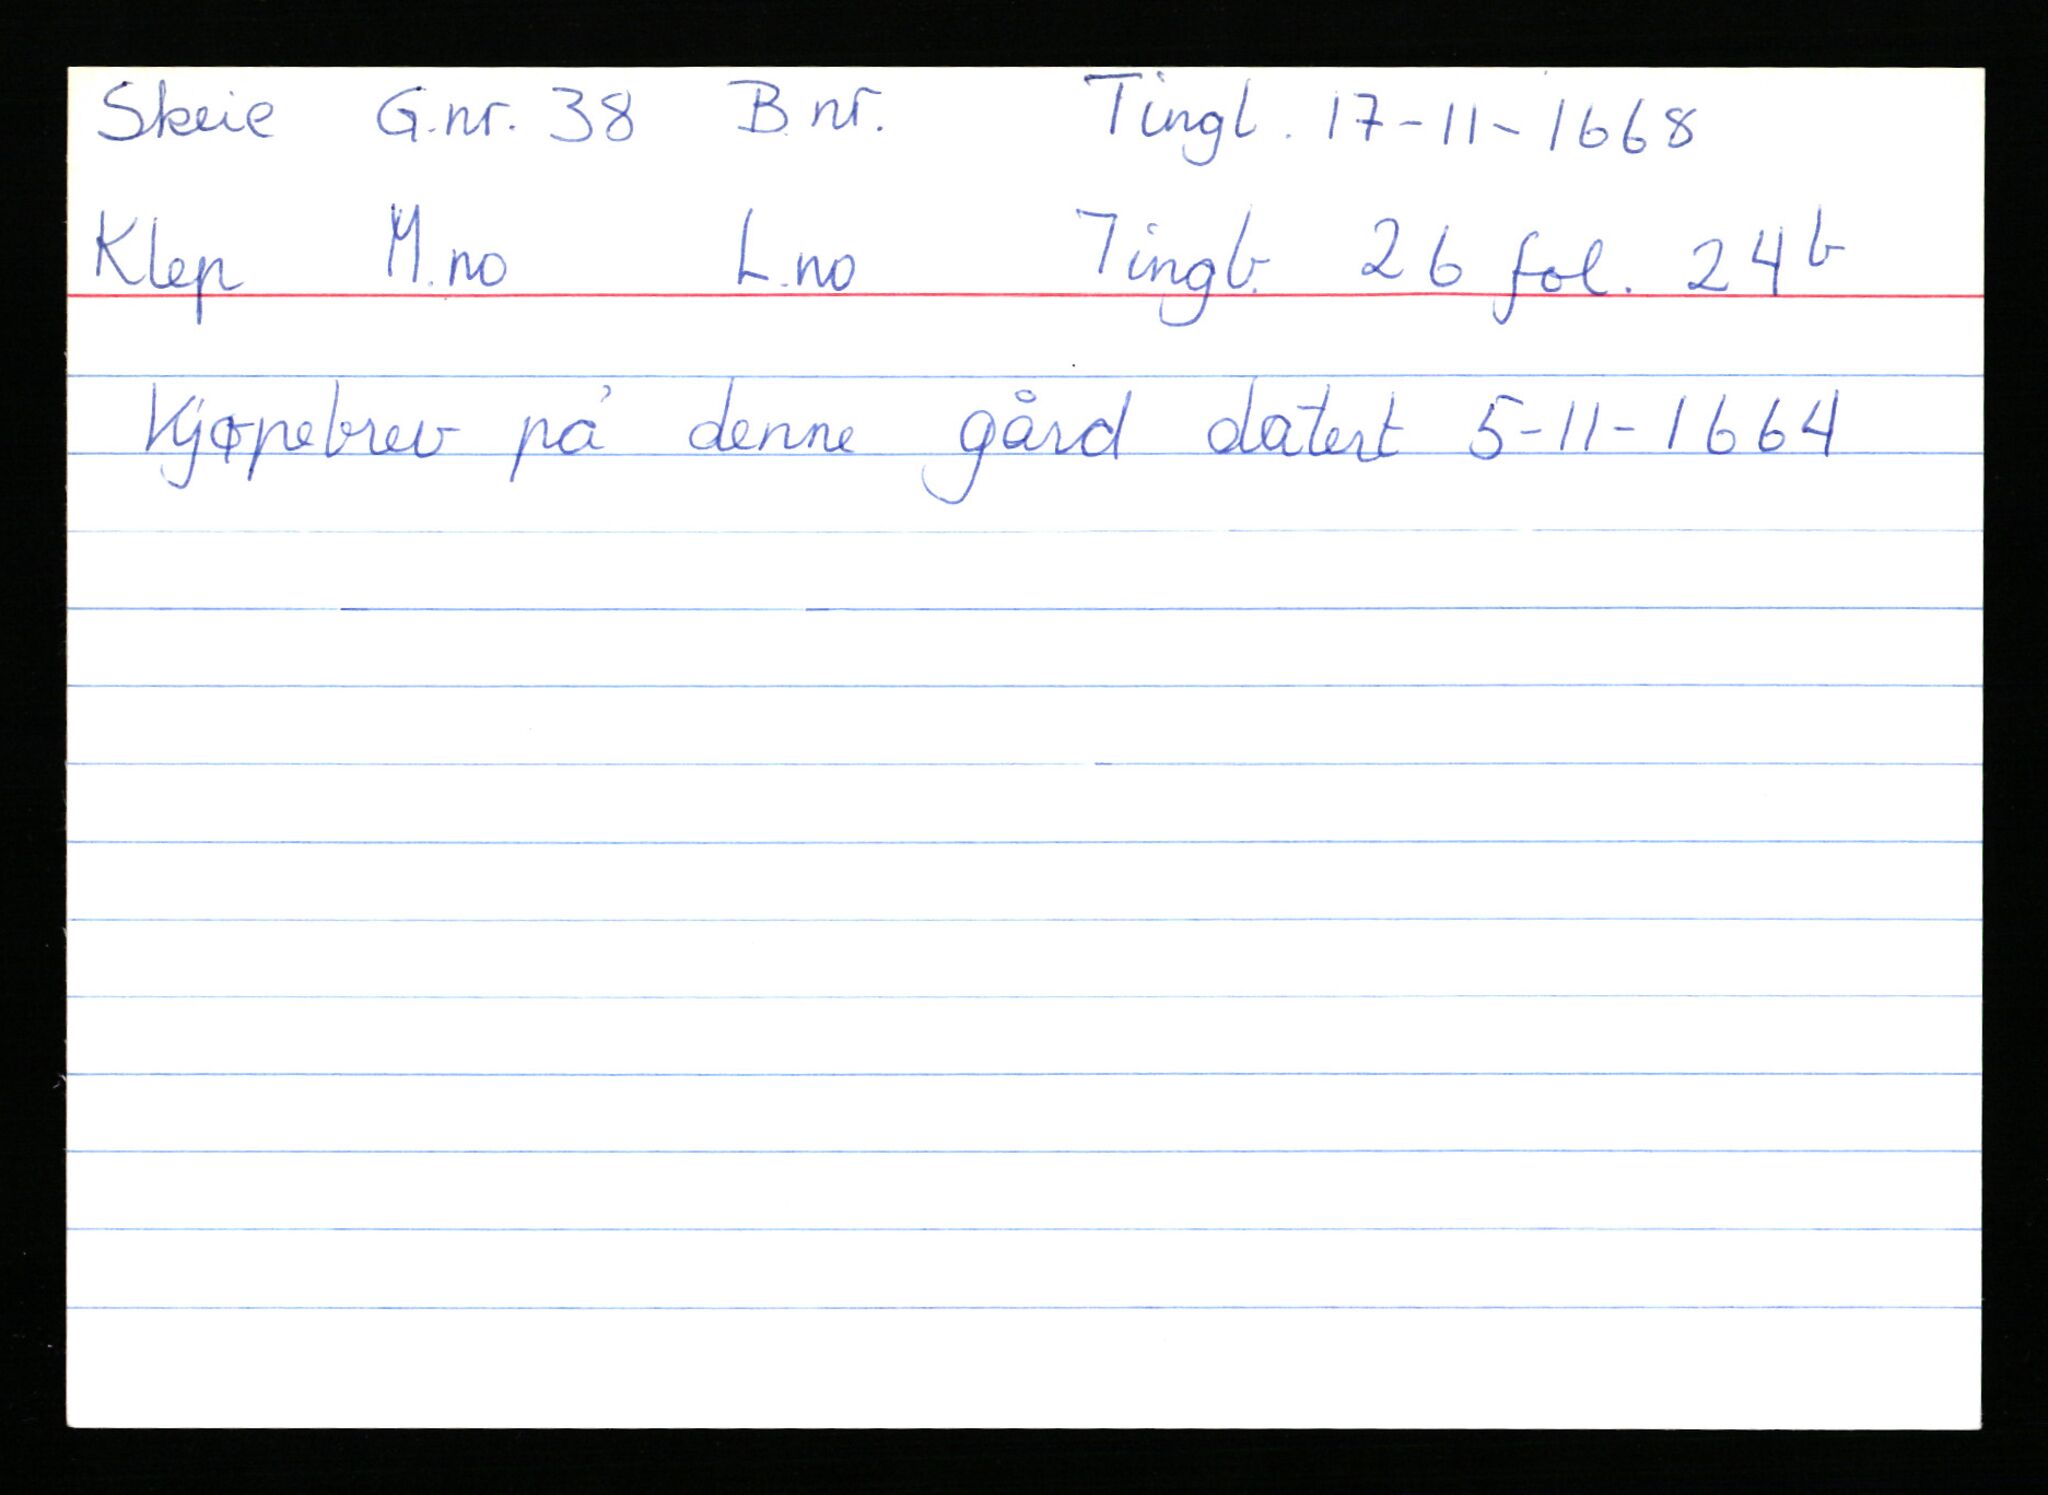 Skeie G.nr. 38 B.nr. Tingl. 17-11-1668
Klep M.no L.no Tingb. 26 fol. 24b
Kjøpebrev på denne gård datert 5-11-1664